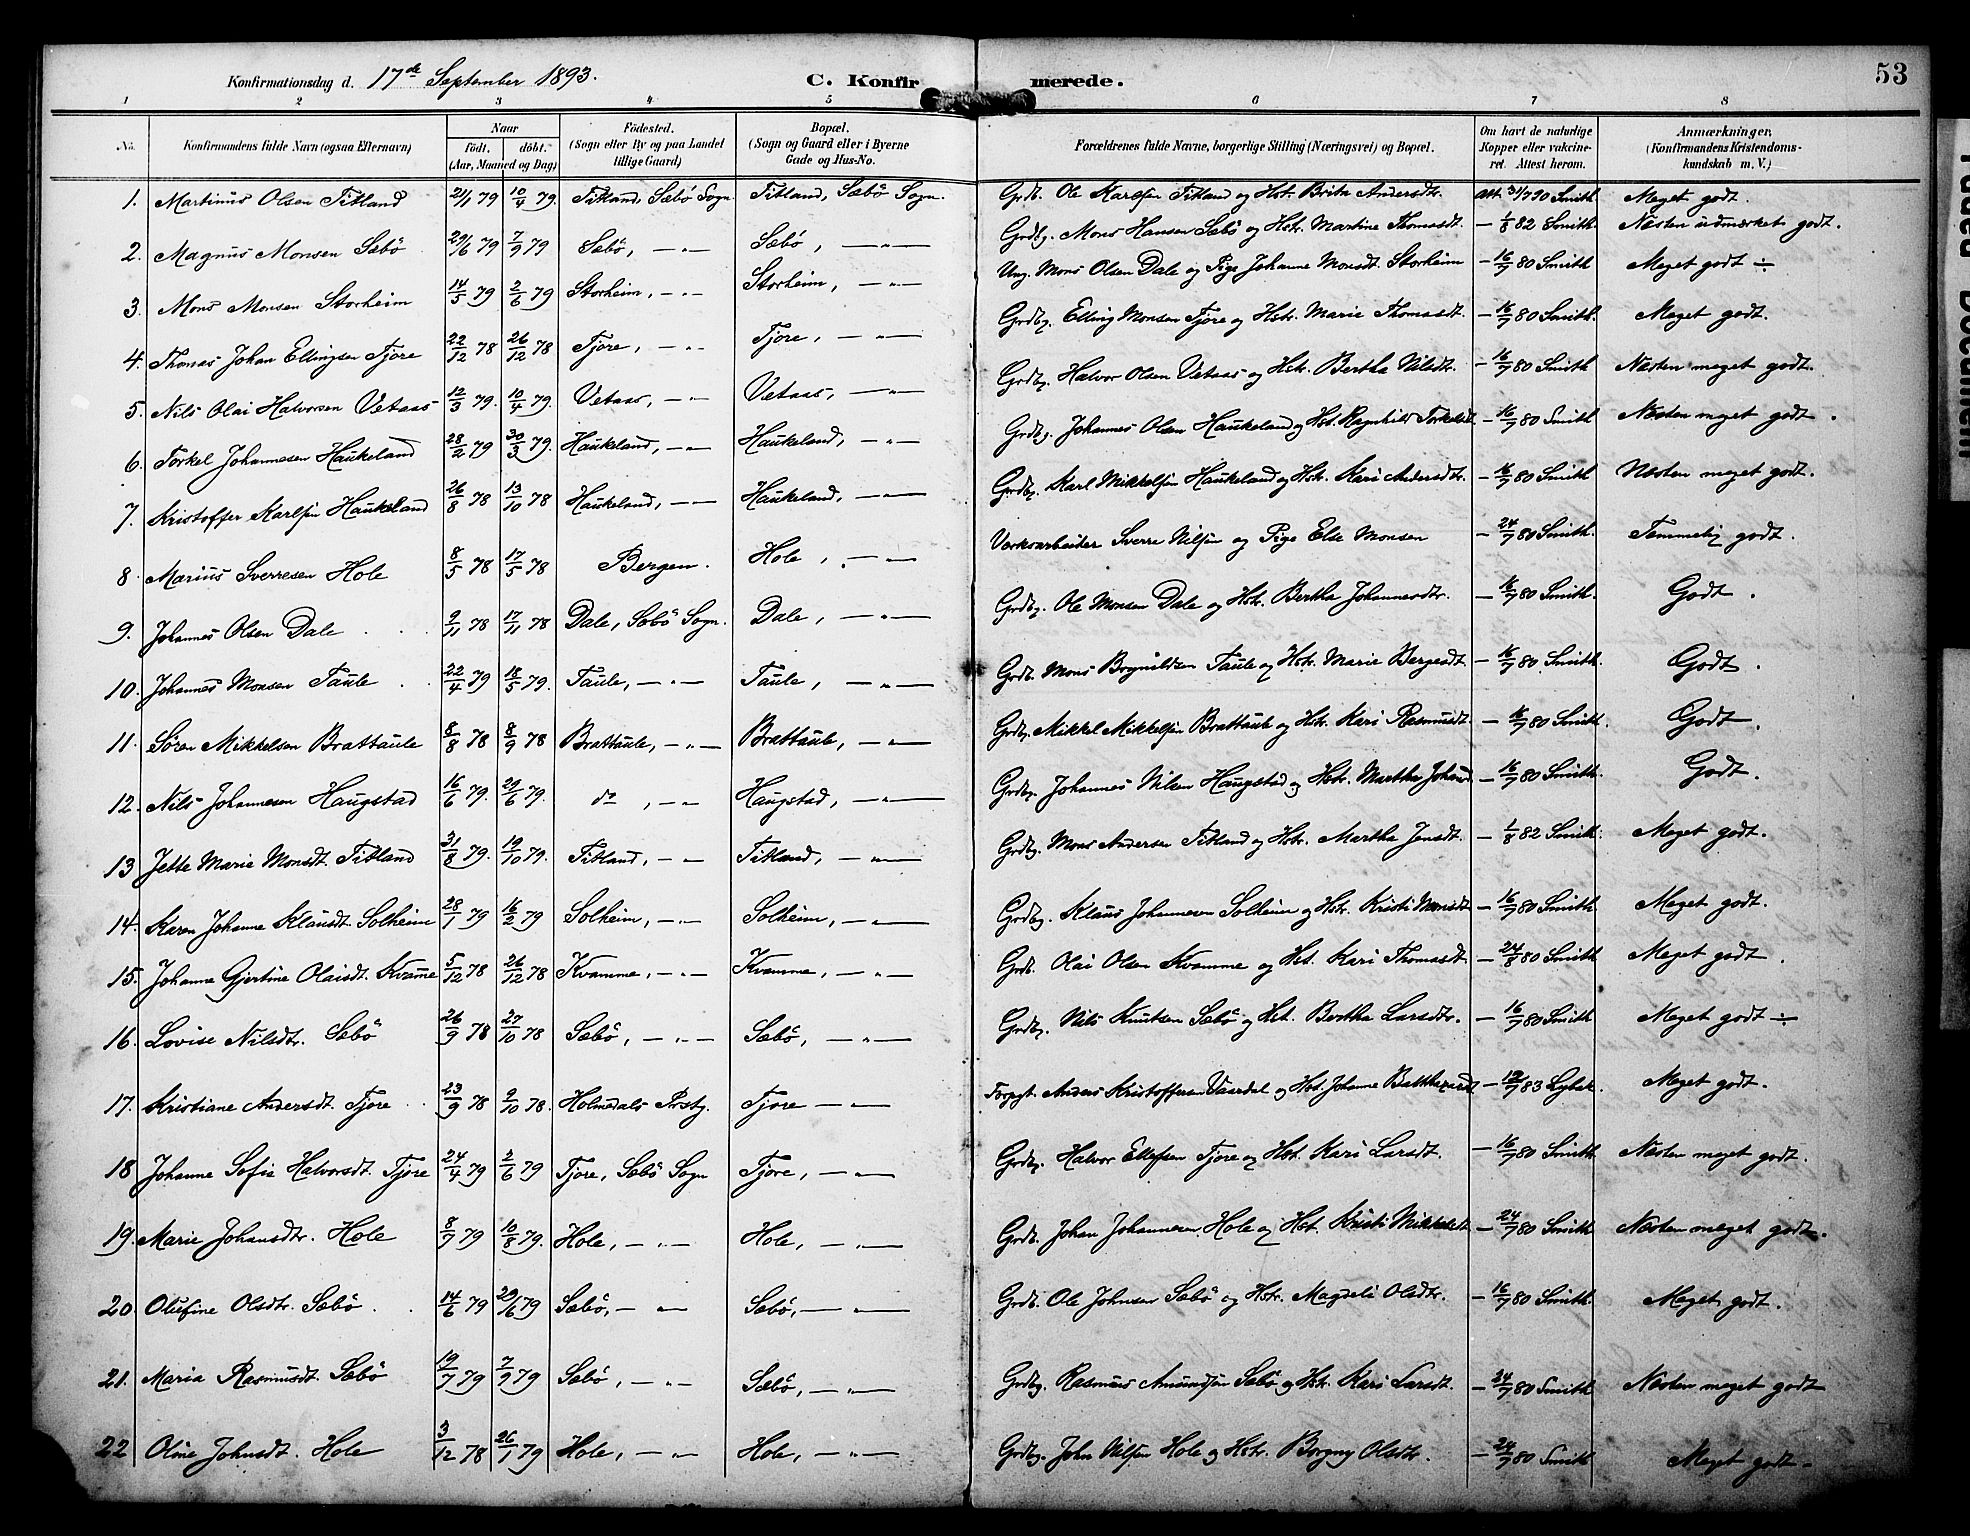 Konfirmationsdag d. 17de September 1893. C. Konfirmerede. 53
1 2 3 4 5 6 7 8
No. Konfirmandens fulde Navn (ogsaa Efternavn) Naar födt. döbt. (Aar, Maaned og Dag) Födested. (Sogn eller By og paa Landet tillige Gaard) Bopæl. (Sogn og Gaard eller i Byerne Gade og Hus-No. Forældrenes fulde Navne, borgerlige Stilling (Næringsvei) og Bopæl. Om havt de naturlige Kopper eller vakcineret. Attest herom. Anmærkninger, (Konfirmandens Kristendomskundskab m. V.)
1. Martinus Olsen Titland 21/1 79 10/4 79. Titland, Sæbö Sogn Titland, Sæbö Sogn. Grdb. Ole Karlsen Titland og Hstr. Brita Andersdtr. Att. 31/7 90 Smith Meget godt.
2. Magnus Monsen Sæbö 29/6 79 7/9 79 Sæbö, — „ — Sæbö, — „ — Grdbg. Mons Hansen Sæbö og Hstr. Martine Thomasdt. — 1/8 82 Smith. Næsten udmærket godt.
3. Mons Monsen Storheim 14/5 79 2/6 79 Storheim, — „ — Storheim, — „ — Ung. Mons Olsen Dale og Pige Johanne Monsdt. Storheim — 16/7 80 Smith Meget godt ÷
4. Thomas Johan Ellingsen Tjore 22/12 78 26/12 78 Tjore, — „ — Tjore, — „ — Grdbg. Elling Monsen Tjore og Hstr. Marie Thomasdt. — 16/7 80 Smith. Meget godt.
5. Nils Olai Halvorsen Vetaas 12/3 79. 10/4 79. Vetaas, — „ — Vetaas, — „ — Grdbg. Halvor Olsen Vetaas og Hstr. Bertha Nilsdt. — 16/7 80 Smith Næsten meget godt.
6. Torkel Johannesen Haukeland 28/2 79 30/3 79. Haukeland, — „ — Haukeland, — „ — Grdbg. Johannes Olsen Haukeland og Hst. Ragnhild Torkelsd. — 16/7 80 Smith Næsten meget godt.
7. Kristoffer Karlsen Haukeland 26/8 78 13/10 78 Haukeland, — „ — Haukeland, — „ — Grdbg. Karl Mikkelsen Haukeland og Hstr. Kari Andersdtr. — 16/7 80 Smith Næsten meget godt.
8. Marius Sverresen Hole 8/5 78 17/5 78 Bergen. Hole, — „ — Værksarbeider Sverre Nilsen og Pige Else Monsen — 24/7 80 Smith. Temmelig godt.
9. Johannes Olsen Dale 9/11 78 17/11 78 Dale, Sæbö Sogn. Dale, — „ — Grdbg. Ole Monsen Dale og Hstr. Bertha Johannesdtr. — 16/7 80 Smith. Godt.
10. Johannes Monsen Taule 22/4 79 18/5 79. Taule, — „ — Taule, — „ — Grdb. Mons Taule og Hstr. Marie — 16/7 80 Smith. Godt.
11. Søren Mikkelsen Brattaule 8/8 78 8/9 78 Brattaule, — „ — Brattaule, — „ — Grdbg. Mikkel Mikkelsen Brattaule og Hstr. Kari Rasmusdt. — 16/7 80 Smith. Godt.
12. Nils Johannesen Haugstad 16/6 79. 29/6 79. do , — „ — Haugstad, — „ — Grdbg. Johannes Nilsen Haugstad og Hstr. Martha — 16/7 80 Smith. Godt.
13 Jette Marie Monsdt. Titland 31/8 79. 19/10 79. Titland, — „ — Titland, — „ — Grdbg. Mons Andersen Titland og Hstr. Martha Jensdt. — 1/8 82 Smith. Meget godt.
14. Karen Johanne Klausdt. Solheim 28/1 79 16/2 79 Solheim, — „ — Solheim, — „ — Grdbg. Klaus Johannesen Solheim og Hstr. Kristi Monsdt — 16/7 80 Smith. Meget godt.
15. Johanne Gjertine Olaisdt. Kvamme 5/12 78 26/12 78 Kvamme, — „ — Kvamme, — „ — Grdb. Olai Olsen Kvamme og Hst. Kari Thomasdt. — 24/8 80 Smith Meget godt.
16. Lovise Nilsdtr. Sæbö 26/9 78 27/10 78 Sæbö, — „ — Sæbö, — „ — Grdbg. Nils Knutsen Sæbö og Hst. Bertha Larsdtr. — 16/7 80 Smith Meget godt ÷
17. Kristiane Andersdt. Tjore 23/9 78 9/10 78. Holmedals Prstg. Tjore — „ — Forpgt. Anders Kristoffersen Vaardal og Hst. Johanne — 12/7 83 Meget godt.
18 Johanne Sofie Halvorsdt. Tjore 24/4 79 2/6 79 Tjore, Sæbö Sogn Tjore, — „ — Grdbg. Halvor Ellefsen Tjore og Hst. Kari Larsdt. — 16/7 80 Smith Næsten meget godt.
19. Marie Johansdtr. Hole 8/7 79 10/8 79. Hole, — „ — Hole, — „ — Grdb. Johan Johannesen Hole og Hst. Kristi Mikkelsdt — 24/7 80 Smith Næsten meget godt.
20. Olufine Olsdtr. Sæbö 14/6 79 29/6 79 Sæbö, — „ — Sæbö, — „ — Grdb. Ole Johnsen Sæbö og Hstr. Magdeli Olsdtr. — 16/7 80 Smith. Meget godt.
21. Maria Rasmusdt. Sæbö 19/7 79 7/9 79 Sæbö, — „ — Sæbö, — „ — Grdbg. Rasmus Amundsen Sæbö og Hstr. Kari Larsdt. — 24/7 80 Smith Næsten meget godt
22 Oline Johnsdt. Hole 3/12 78 26/1 79 Hole, — „ — Hole, — „ — Grdbg. John Nilsen Hole og Hstr. Borgny Olsdtr. — 24/7 80 Smith Meget godt.